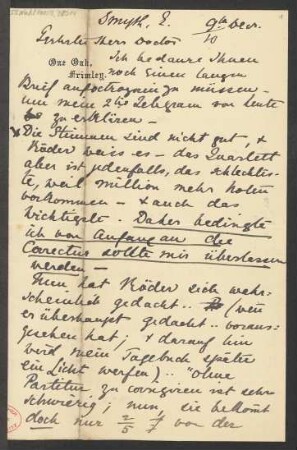 Smyth, E.
9ten Decr.
10
Geehrter Herr Doctor
One Oak,
Frimley.
Ich bedaure Ihnen
noch einen langen
Brief aufoctroyiren zu müssen –
um mein 2tes Telegram von heute
zu erklären –
Die Stimmen sind nicht gut, &
Röder weiss es – das Quartett
aber ist jedenfalls, das schlechtes-
te, weil million mehr Noten
vorkommen – & auch das
Wichtigste. Daher bedingte
ich von Anfang an die
Correctur sollte mir überlassen
werden –
Nun hat Röder sich wahr-
scheinlich gedacht .. (wenn
er überhaupt gedacht .. voraus-
gesehen hat; & darauf hin
wird mein Tagebuch später
ein Licht werfen) .. "ohne
Partitur zu corrigiren ist sehr
schwierig; nun, sie bekommt
doch nur 2/5 4/7 von der